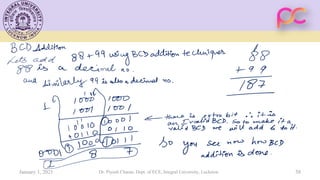 BCD Addition
Lets add 88 + 99 using BCD addition techniques
88 is a decimal no.
and similarly 99 is also a decimal no.
88
+ 99
187
1000 1000
1001 1001
1 0010 1 0001
0110 0110
0001 1000 0111
1 8 7
there is extra bit ∴ it is
an invalid BCD. So to make it a
valid BCD we will add 6 to it.
So you see now how BCD
addition is done.
January 1, 2021
Dr. Piyush Charan, Dept. of ECE, Integral University, Lucknow
50